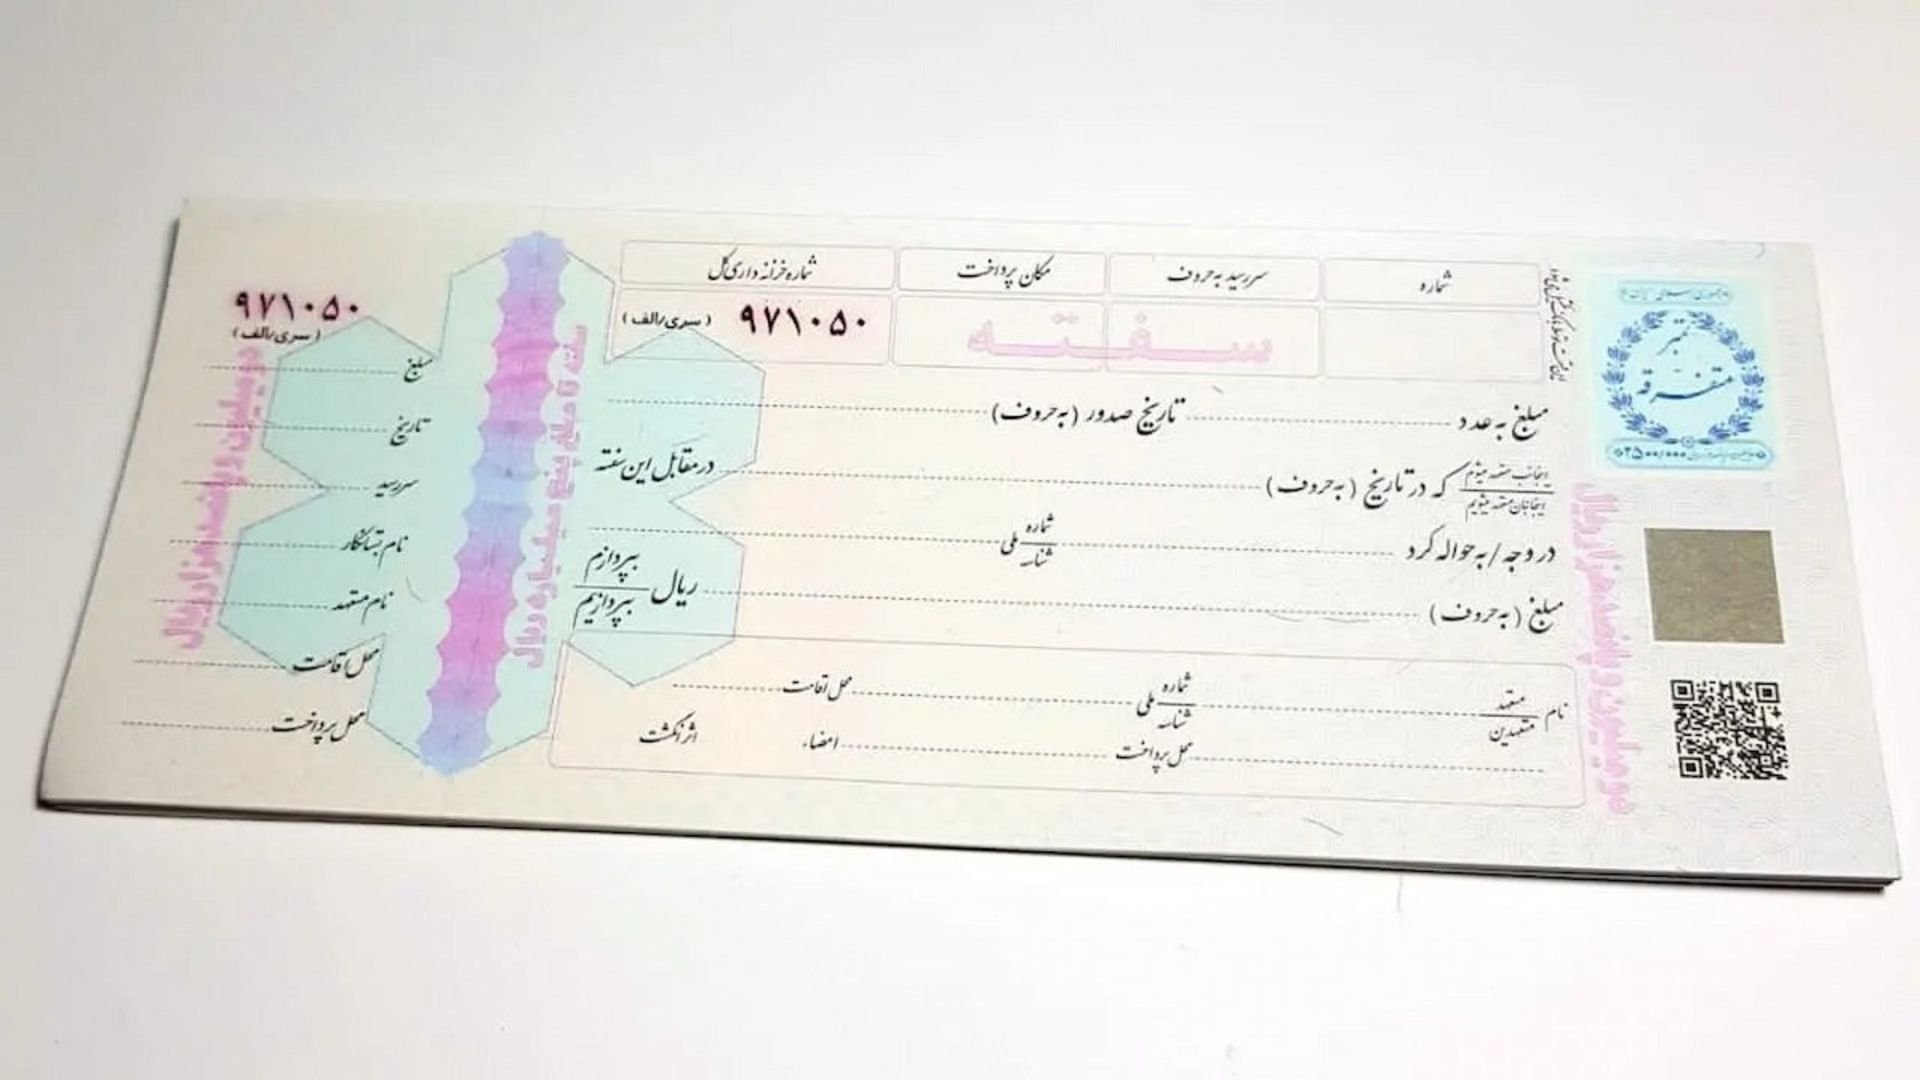 شماره
سررسید به حروف
مکان پرداخت
شماره خزانه داری کل
سفته
۹۷۱۰۵۰
(سری/الف)
مبلغ به عدد تاریخ صدور (به حروف)
اینجانب متعهد میشوم
اینجانبان متعهد میشویم
که در تاریخ (به حروف) در مقابل این سفته
در وجه / به حواله کرد شماره ملی
شناسه
مبلغ (به حروف) ریال بپردازم
بپردازیم
نام متعهد
متعهدین
شماره ملی
شناسه
محل اقامت
محل پرداخت
امضاء
اثر انگشت
تمبر
متفرقه
دو میلیون و پانصد هزار ریال
سفته تا مبلغ پنج میلیارد ریال
۹۷۱۰۵۰
(سری/الف)
مبلغ
تاریخ
سررسید
نام بستانکار
نام متعهد
محل اقامت
محل پرداخت
دو میلیون و پانصد هزار ریال